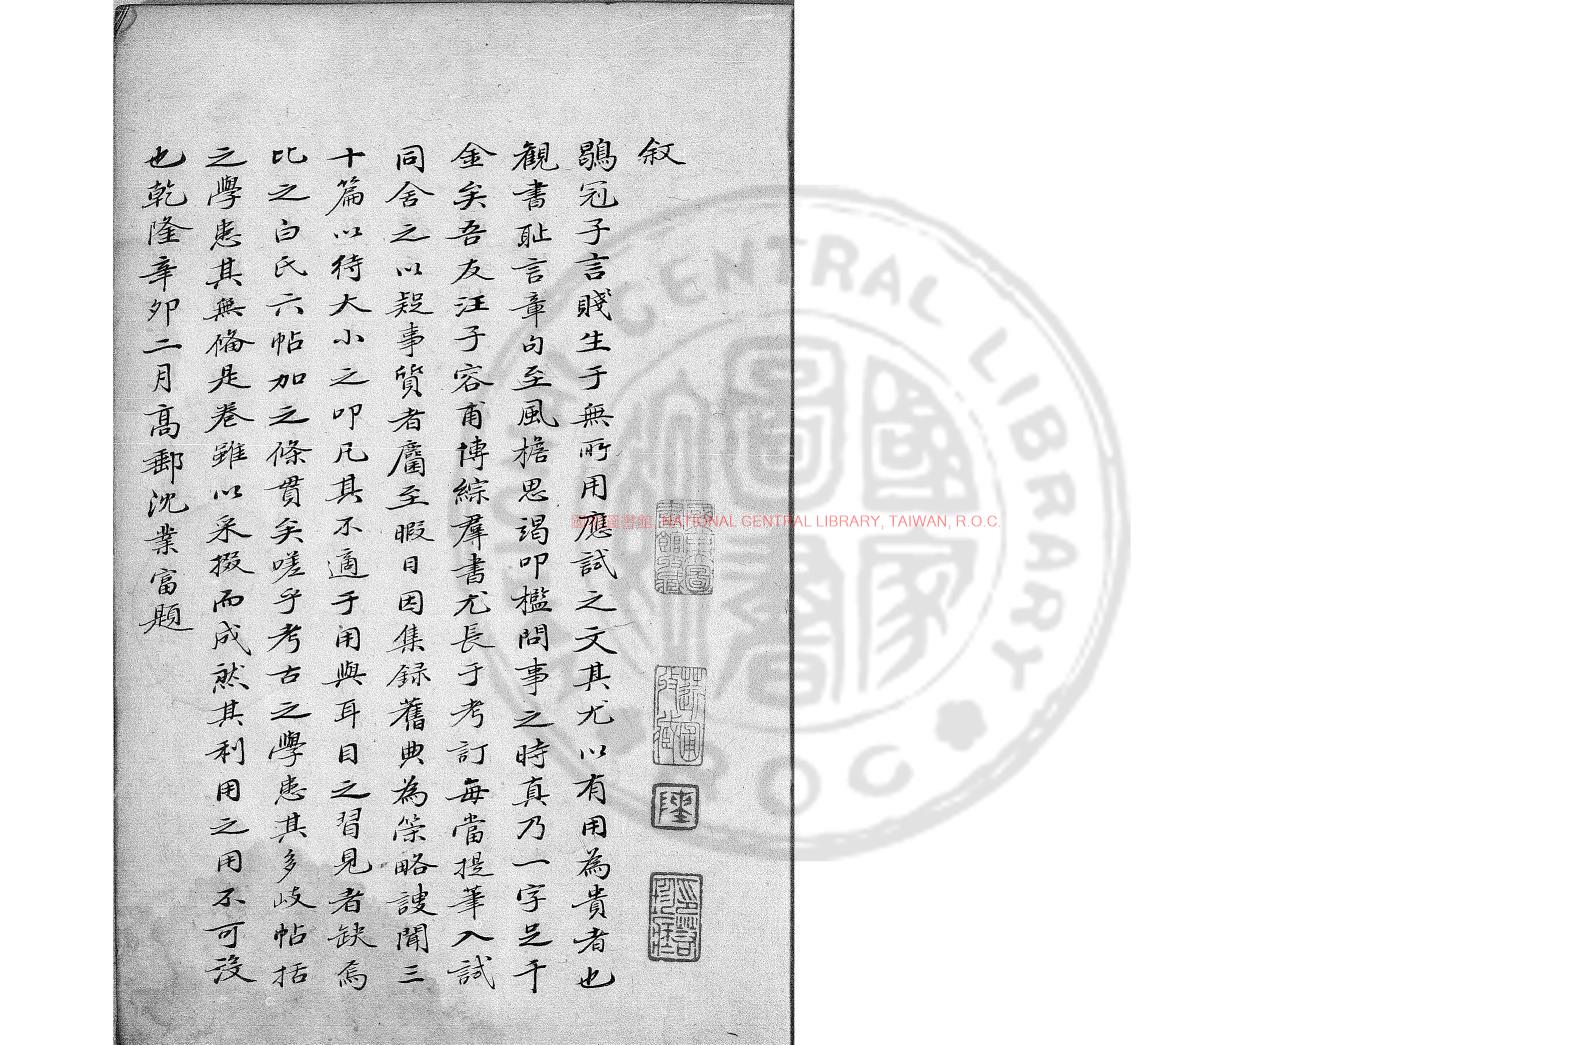 叙
鶡冠子言賤生于無所用應試之文其尤以有用為貴者也
觀書耻言章句至風檐思竭叩檻問事之時真乃一字足千
金矣吾友汪子容甫博綜羣書尤長于考訂每當提筆入試
同舍之以疑事質者麕至暇日因集録舊典為策略謏聞三
十篇以待大小之叩凡其不適于用與耳目之習見者缺焉
比之白氏六帖加之條貫矣嗟乎考古之學患其多歧帖括
之學患其無偹是卷雖以采掇而成然其利用之用不可沒
也乾隆辛卯二月高郵沈業富題
國家圖書館, NATIONAL CENTRAL LIBRARY, TAIWAN, R.O.C.
CENTRAL LIBRARY